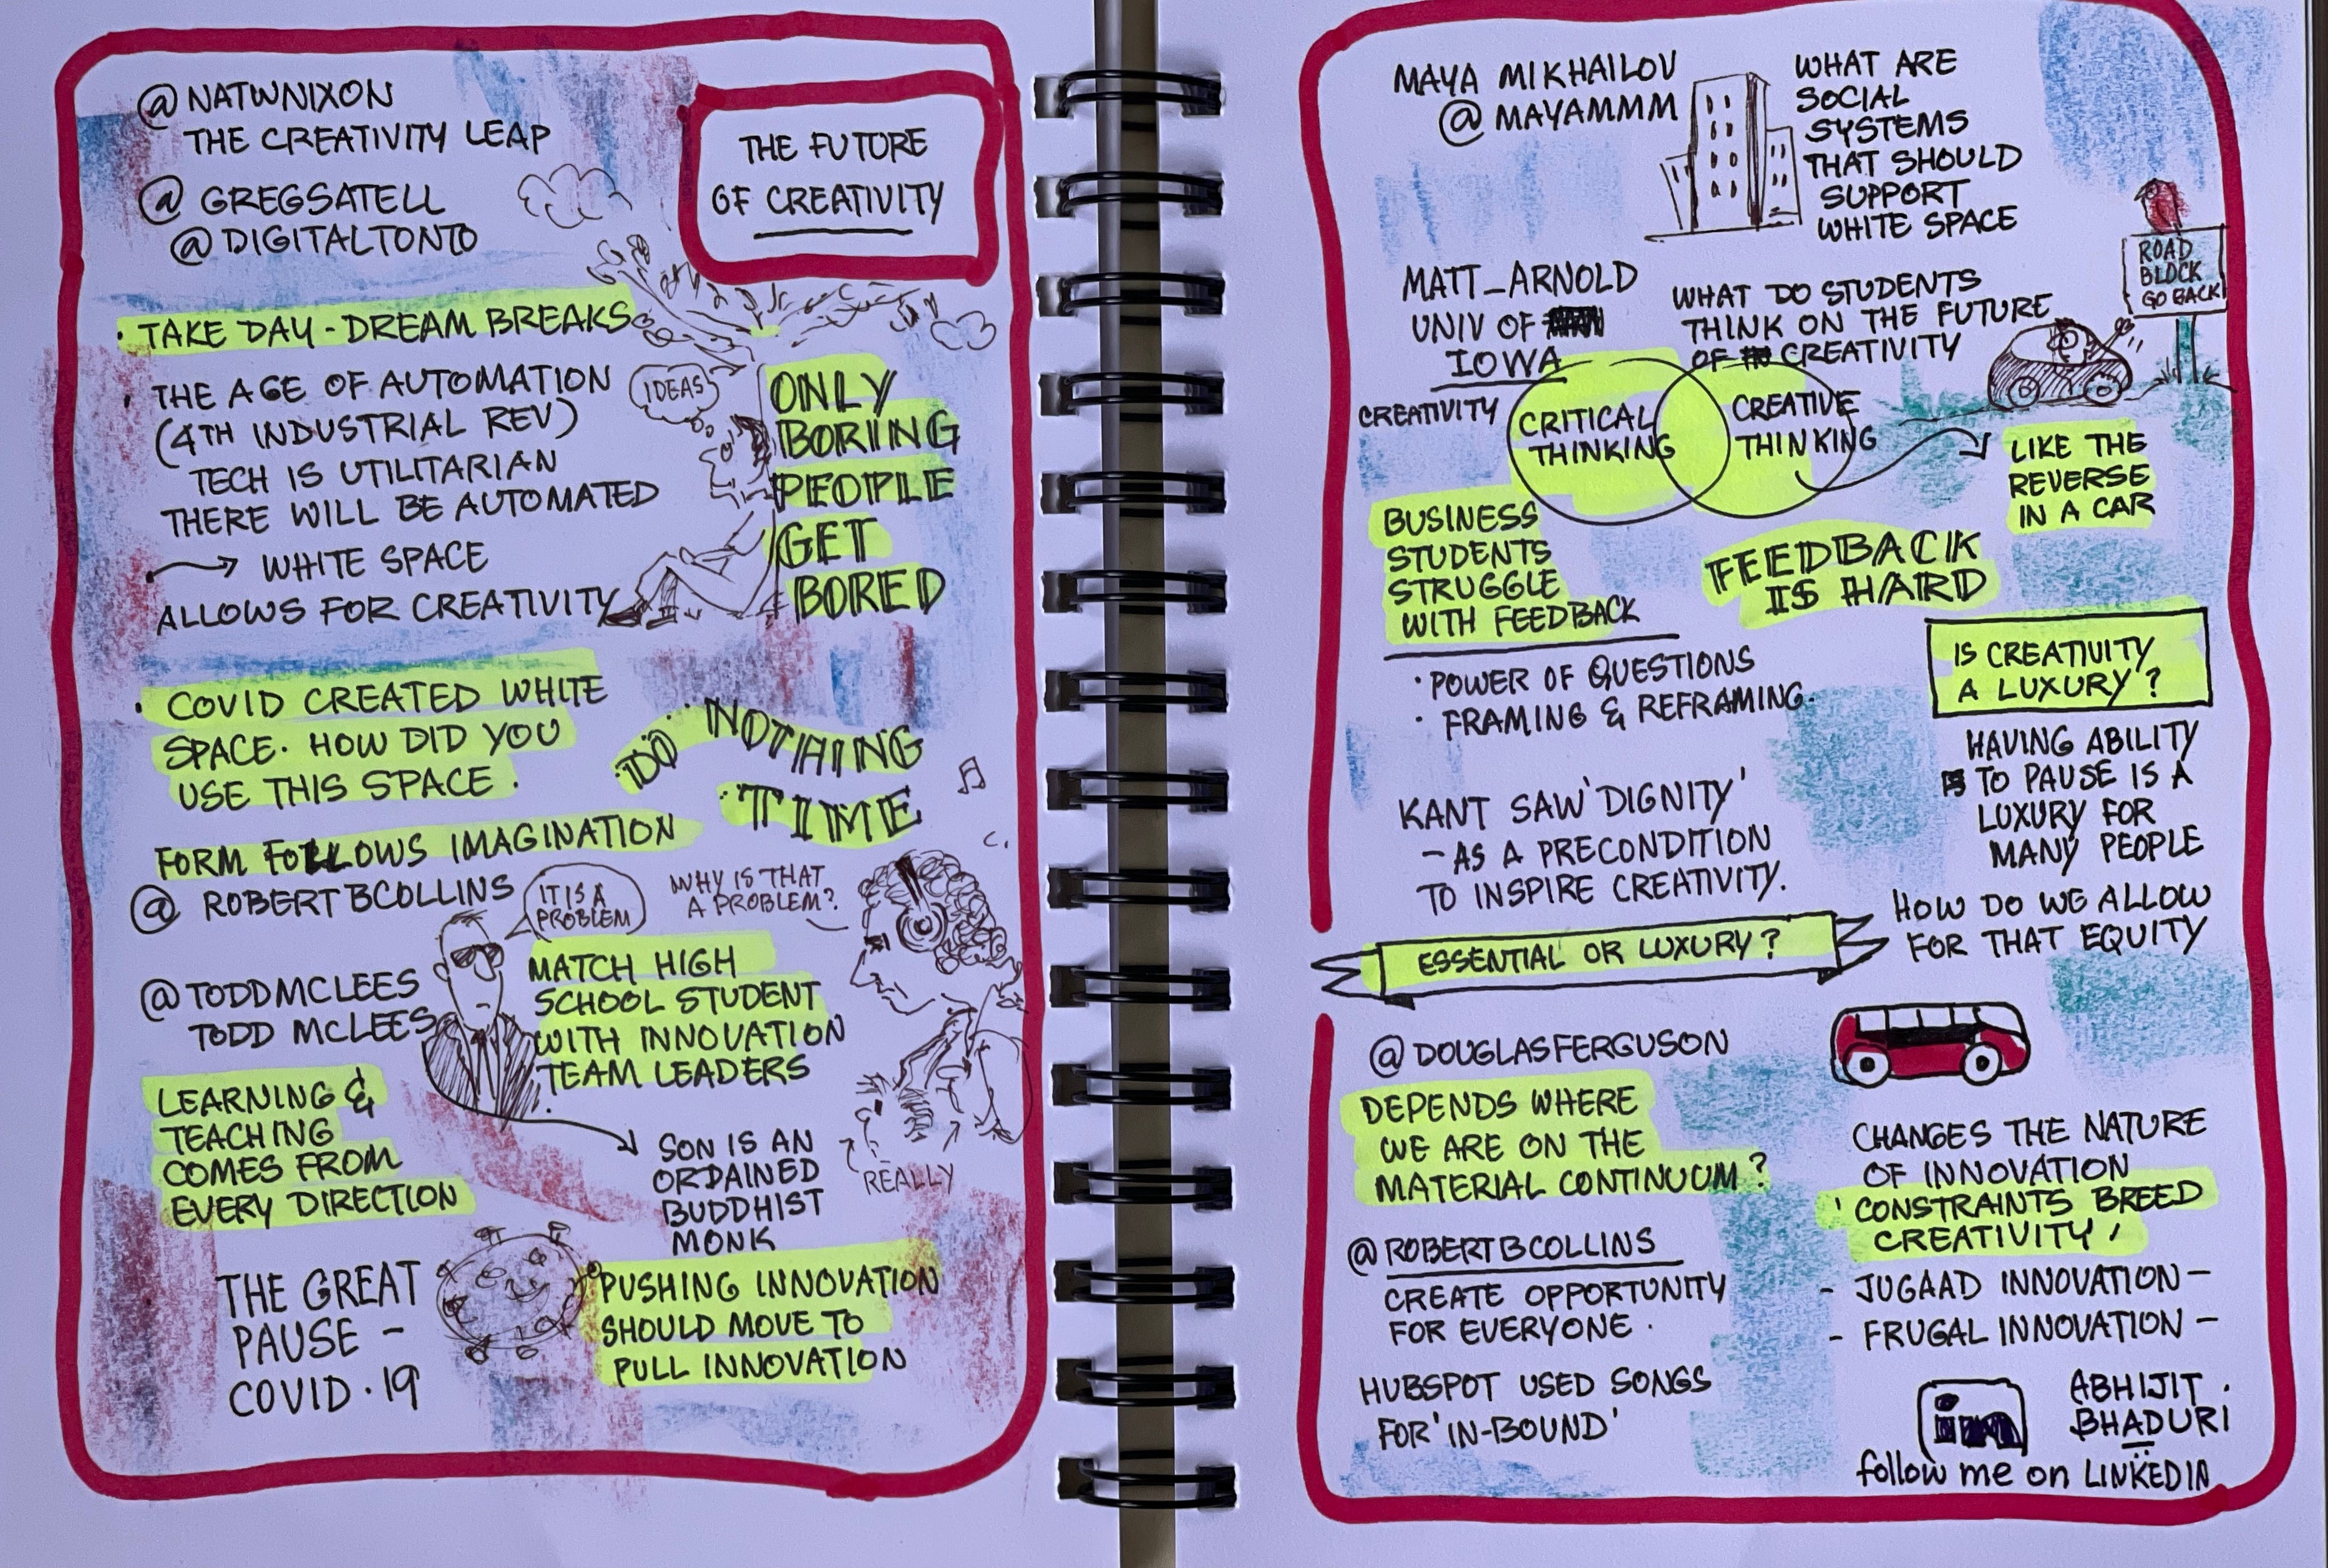 @NATWNIXON
THE CREATIVITY LEAP
@ GREGSATELL
@DIGITALTONTO
THE FUTURE
OF CREATIVITY
· TAKE DAY-DREAM BREAKS
· THE AGE OF AUTOMATION
(4TH INDUSTRIAL REV)
TECH IS UTILITARIAN
THERE WILL BE AUTOMATED
→ WHITE SPACE
ALLOWS FOR CREATIVITY
IDEAS
ONLY
BORING
PEOPLE
GET
BORED
· COVID CREATED WHITE
SPACE. HOW DID YOU
USE THIS SPACE.
DO NOTHING
TIME
FORM FOLLOWS IMAGINATION
@ ROBERTBCOLLINS
IT IS A
PROBLEM
WHY IS THAT
A PROBLEM?
@TODDMCLEES
TODD MCLEES
MATCH HIGH
SCHOOL STUDENT
WITH INNOVATION
TEAM LEADERS
LEARNING &
TEACHING
COMES FROM
EVERY DIRECTION
SON IS AN
ORDAINED
BUDDHIST
MONK
REALLY
THE GREAT
PAUSE -
COVID.19
PUSHING INNOVATION
SHOULD MOVE TO
PULL INNOVATION
MAYA MIKHAILOV
@MAYAMMM
WHAT ARE
SOCIAL
SYSTEMS
THAT SHOULD
SUPPORT
WHITE SPACE
MATT_ARNOLD
UNIV OF
IOWA
WHAT DO STUDENTS
THINK ON THE FUTURE
OF CREATIVITY
ROAD
BLOCK
GO BACK
CREATIVITY
CRITICAL
THINKING
CREATIVE
THINKING
LIKE THE
REVERSE
IN A CAR
BUSINESS
STUDENTS
STRUGGLE
WITH FEEDBACK
FEEDBACK
IS HARD
· POWER OF QUESTIONS
· FRAMING & REFRAMING.
IS CREATIVITY
A LUXURY?
HAVING ABILITY
TO PAUSE IS A
LUXURY FOR
MANY PEOPLE
KANT SAW 'DIGNITY'
- AS A PRECONDITION
TO INSPIRE CREATIVITY.
HOW DO WE ALLOW
FOR THAT EQUITY
ESSENTIAL OR LUXURY?
@DOUGLASFERGUSON
DEPENDS WHERE
WE ARE ON THE
MATERIAL CONTINUUM?
CHANGES THE NATURE
OF INNOVATION
'CONSTRAINTS BREED
CREATIVITY'
- JUGAAD INNOVATION -
- FRUGAL INNOVATION -
@ROBERTBCOLLINS
CREATE OPPORTUNITY
FOR EVERYONE.
HUBSPOT USED SONGS
FOR 'IN-BOUND'
in
ABHIJIT
BHADURI
follow me on LINKEDIN